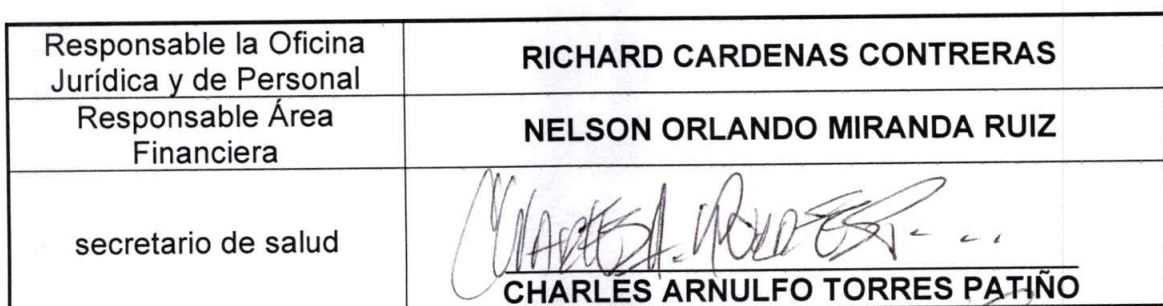 Responsable la Oficina
Jurídica y de Personal
RICHARD CARDENAS CONTRERAS
Responsable Área
Financiera
NELSON ORLANDO MIRANDA RUIZ
secretario de salud
CHARLES ARNULFO TORRES PATIÑO